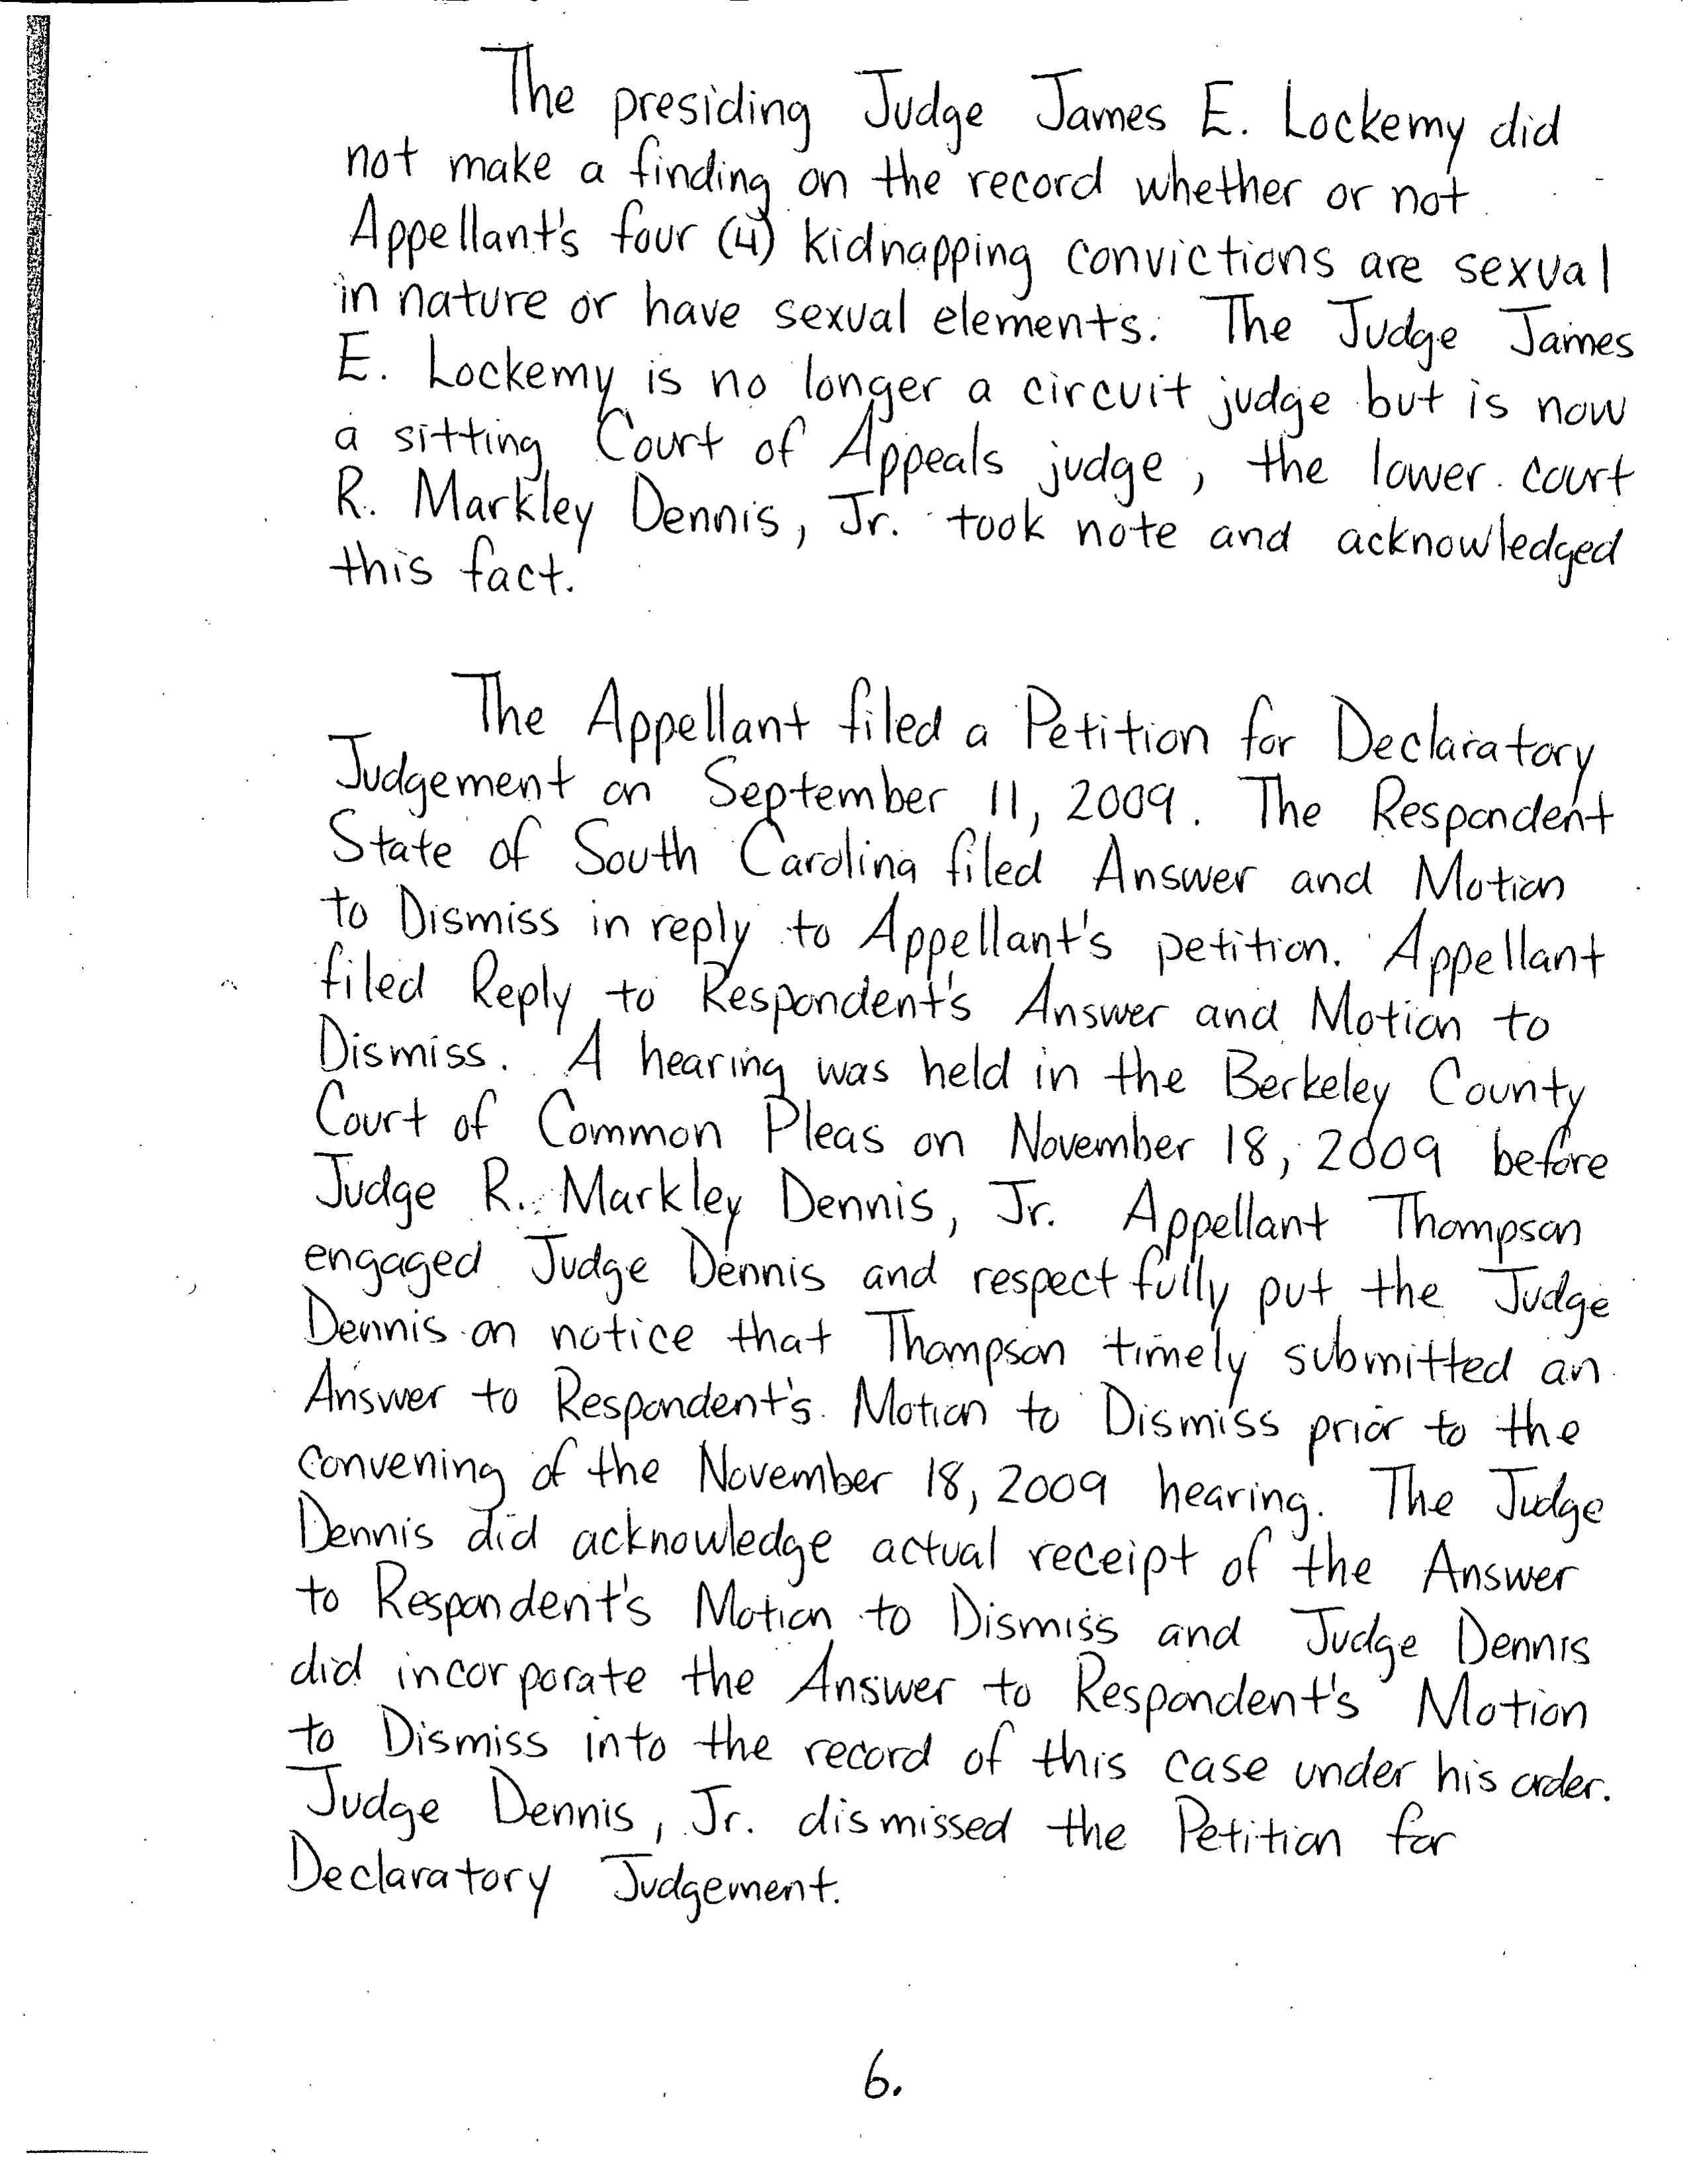 The presiding Judge James E. Lockemy did
not make a finding on the record whether or not
Appellant's four (4) kidnapping convictions are sexual
in nature or have sexual elements. The Judge James
E. Lockemy is no longer a circuit judge but is now
a sitting Court of Appeals judge, the lower court
R. Markley Dennis, Jr. took note and acknowledged
this fact.
The Appellant filed a Petition for Declaratory
Judgement on September 11, 2009. The Respondent
State of South Carolina filed Answer and Motion
to Dismiss in reply to Appellant's petition. Appellant
filed Reply to Respondent's Answer and Motion to
Dismiss. A hearing was held in the Berkeley County
Court of Common Pleas on November 18, 2009 before
Judge R. Markley Dennis, Jr. Appellant Thompson
engaged Judge Dennis and respectfully put the Judge
Dennis on notice that Thompson timely submitted an
Answer to Respondent's Motion to Dismiss prior to the
convening of the November 18, 2009 hearing. The Judge
Dennis did acknowledge actual receipt of the Answer
to Respondent's Motion to Dismiss and Judge Dennis
did incorporate the Answer to Respondent's Motion
to Dismiss into the record of this case under his order.
Judge Dennis, Jr. dismissed the Petition for
Declaratory Judgement.
6.